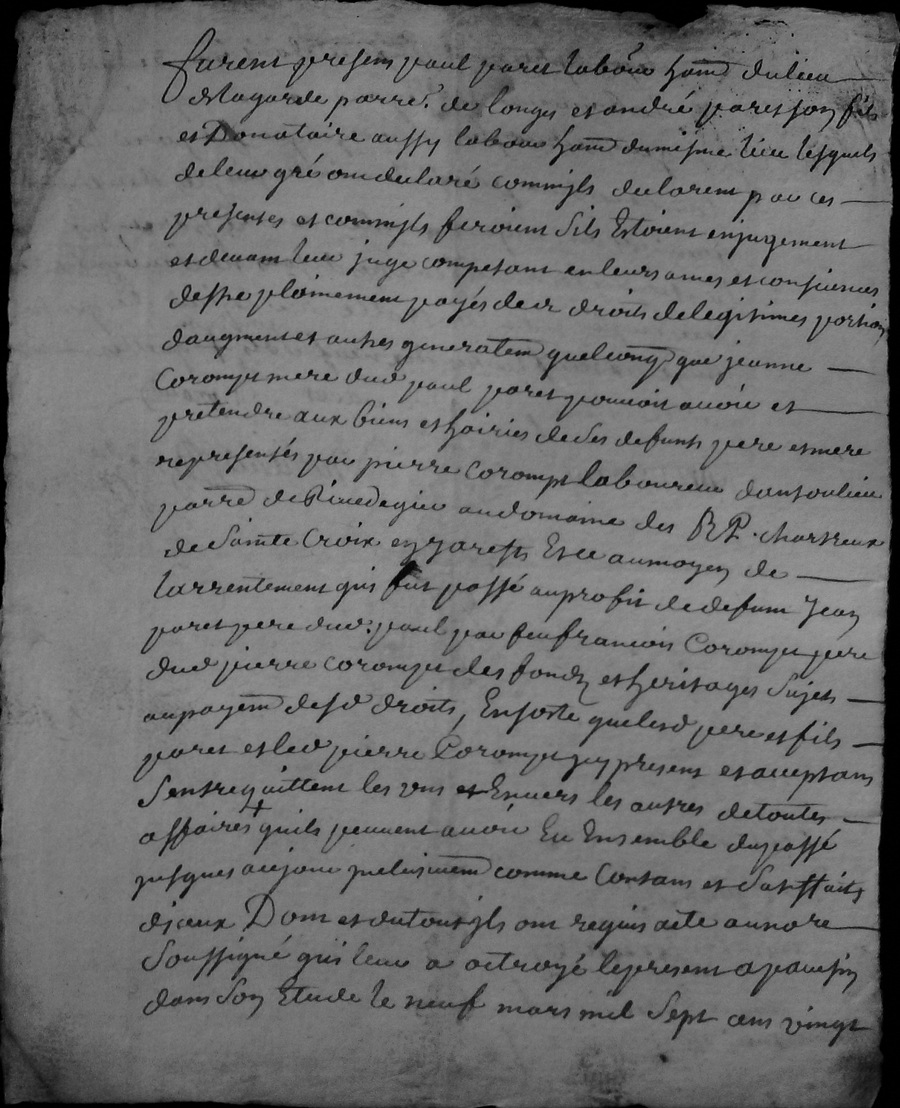 furent presens paul paret labour habit du lieu
de lagarde parre. de longes et andré paret son fils
et Donataire aussy labour habit du mesme lieu lesquels
de leur gré ont declaré comm'ils declarent par ces
presentes et comm'ils feroient s'ils Estoient en jugement
et devant leur juge competant en leurs ames et consiences
desstre plainement payés des droits de legitimes portion
daugment et autres generalem quelconq que jeanne
Corompt mere dud paul paret pouvoit avoir et
pretendre aux biens et hoiries de ses defunts pere et mere
representés par pierre Corompt laboureur dans
parre de Rivedegier au domaine des R P. chartreux
de Sainte Croix en jarests Et ce au moyen de
larrentement qui fut passé au profit de defunt Jean
paret pere dud. paul par feu francois Corompt pere
dud pierre corompt des fonds et heritages Sujets
au payem desd droits, En sorte que lesd pere et fils
paret et led pierre Corompt icy present et acceptant
S'entrequittent les uns Envers les autres de toutes
affaires + quils peuvent avoir Eu Ensemble du passé
jusques aujourd'huy comme Contans et Satisffaits
diceux Dont et du tout ils ont requis acte au nore
Soussigné qui leur a octroyé le present a pavesin
dans Son Etude le neuf mars mil Sept cens vingt